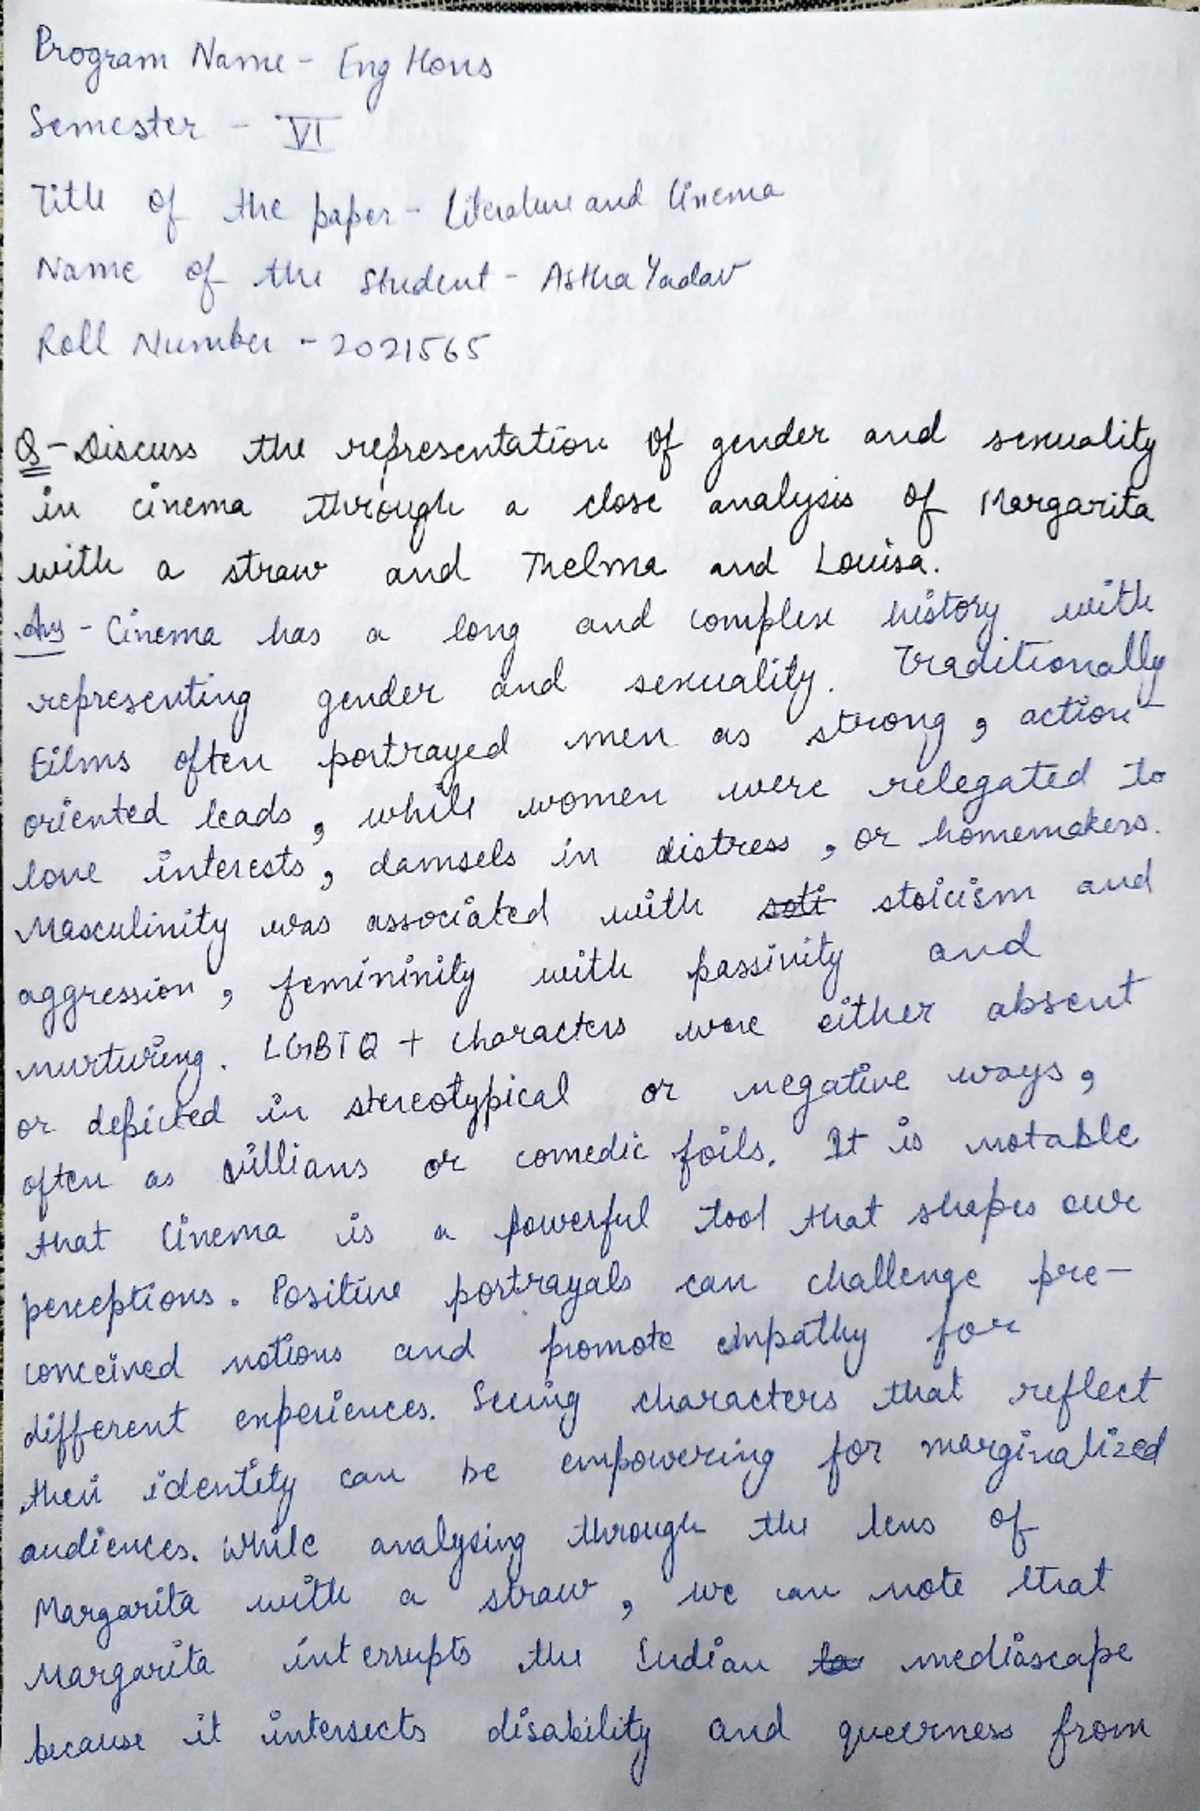 Program Name - Eng Hons
Semester - VI
Title of the paper - Literature and Cinema
Name of the Student - Astha Yadav
Roll Number - 2021565
Q - Discuss the representation of gender and sexuality
in cinema through a close analysis of Margarita
with a straw and Thelma and Louisa.
Ans - Cinema has a long and complex history with
representing gender and sexuality. Traditionally
Films often portrayed men as strong, action-
oriented leads, while women were relegated to
love interests, damsels in distress, or homemakers.
Masculinity was associated with soti stoicism and
aggression, femininity with passivity and
nurturing. LGBTQ + characters were either absent
or depicted in stereotypical or negative ways,
often as villians or comedic foils. It is notable
that Cinema is a powerful tool that shapes our
perceptions. Positive portrayals can challenge pre-
conceived notions and promote empathy for
different experiences. Seeing characters that reflect
their identity can be empowering for marginalized
audiences. While analysing through the lens of
Margarita with a straw, we can note that
Margarita interrupts the Indian mediascape
because it intersects disability and queerness from